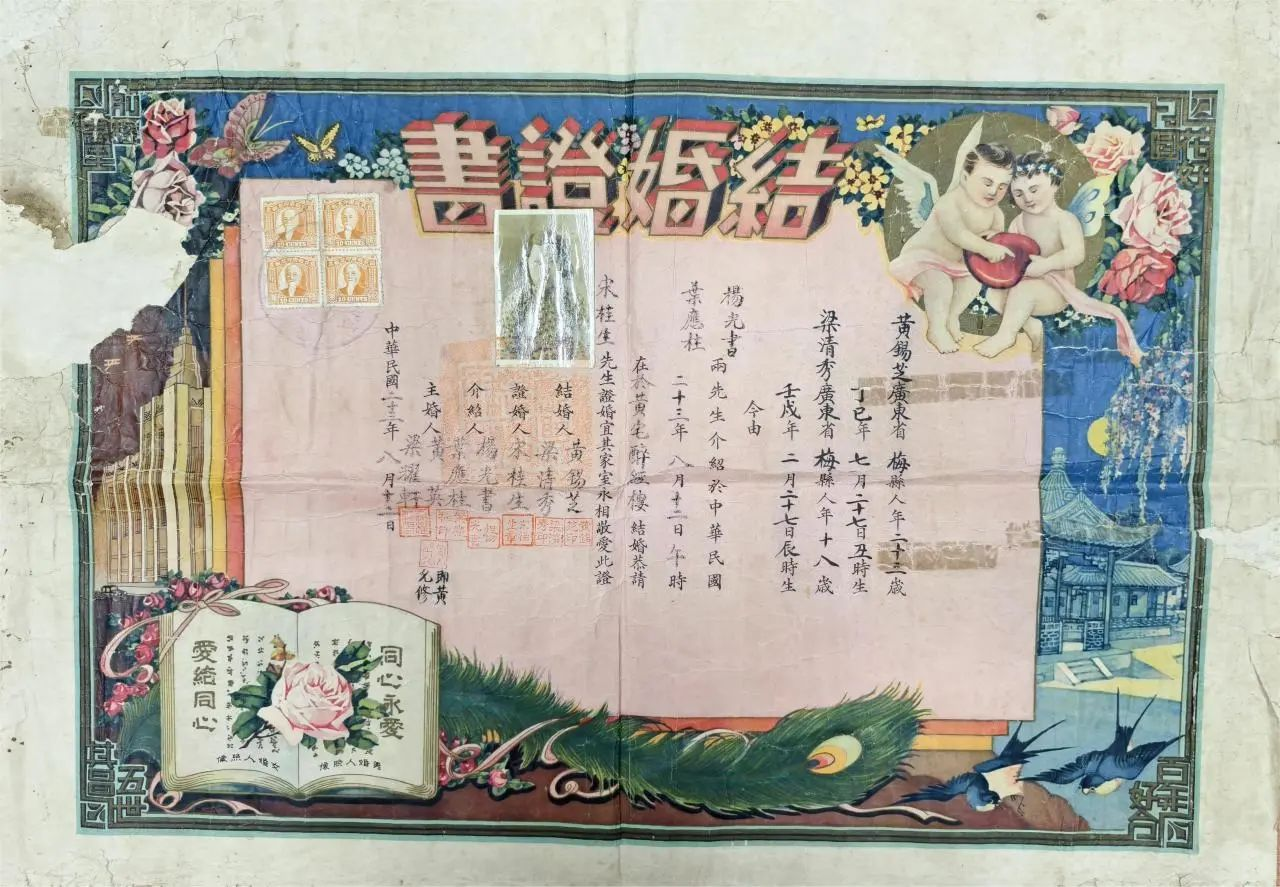 結婚證書
花好月圓
黃錫芝廣東省梅縣人年二十三歲
丁巳年七月二十七日丑時生
梁清秀廣東省梅縣人年十八歲
壬戌年二月二十七日辰時生
今由
楊光書
葉應柱
兩先生介紹於中華民國
二十三年八月十二日午時
在於黃宅醉經樓結婚恭請
宋桂生先生證婚宜其家室永相敬愛此證
結婚人黃錫芝
梁清秀
證婚人宋桂生
介紹人楊光書
葉應桂
主婚人黃英
即黃
允修
梁濯軒
中華民國二十三年八月十二日
10 CENTS
10 CENTS
10 CENTS
10 CENTS
同心永愛
愛結同心
男婚人照像
女婚人照像
百年好合
五世其昌